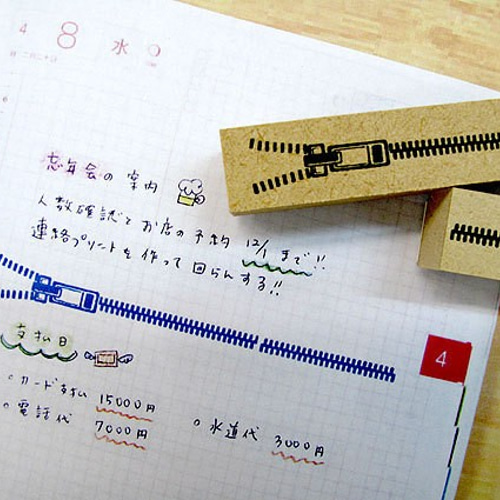 4
8 水
6
忘年会の案内
人数確認とお店の予約 12/1まで!!
連絡プリントを作って回らんする!!
4
支払日
○カード支払 15000円
○電話代 7000円
○水道代 3000円